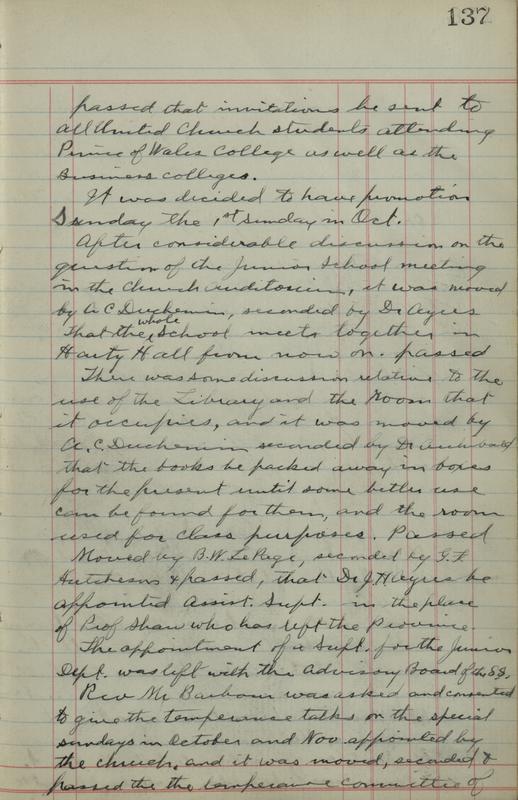 137
passed that invitations be sent to
all United Church students attending
Prince of Wales College as well as the
Business colleges.
It was decided to have promotion
Sunday the 1st Sunday in Oct.
After considerable discussion on the
question of the Junior School meeting
in the Church auditorium, it was moved
by A C Duchemin, seconded by Dr Ayers
That the whole School meets together in
Hearty Hall from now on. passed
There was some discussion relative to the
use of the Library and the room that
it occupies, and it was moved by
A. C. Duchemin seconded by Dr Archibald
that the books be packed away in boxes
for the present until some better use
can be found for them, and the room
used for class purposes. Passed
Moved by B. W. LePage, seconded by G. F
Hutcheson & passed, that Dr J. H Ayers be
appointed Assist. Supt. in the place
of Prof Shaw who has left the Province.
The appointment of a Supt. for the Junior
Dept. was left with the Advisory Board of the S.S.
Rev Mr Barbour was asked and consented
to give the temperance talks on the special
sundays in October and Nov appointed by
the church. and it was moved, seconded &
passed the the temperance committee of